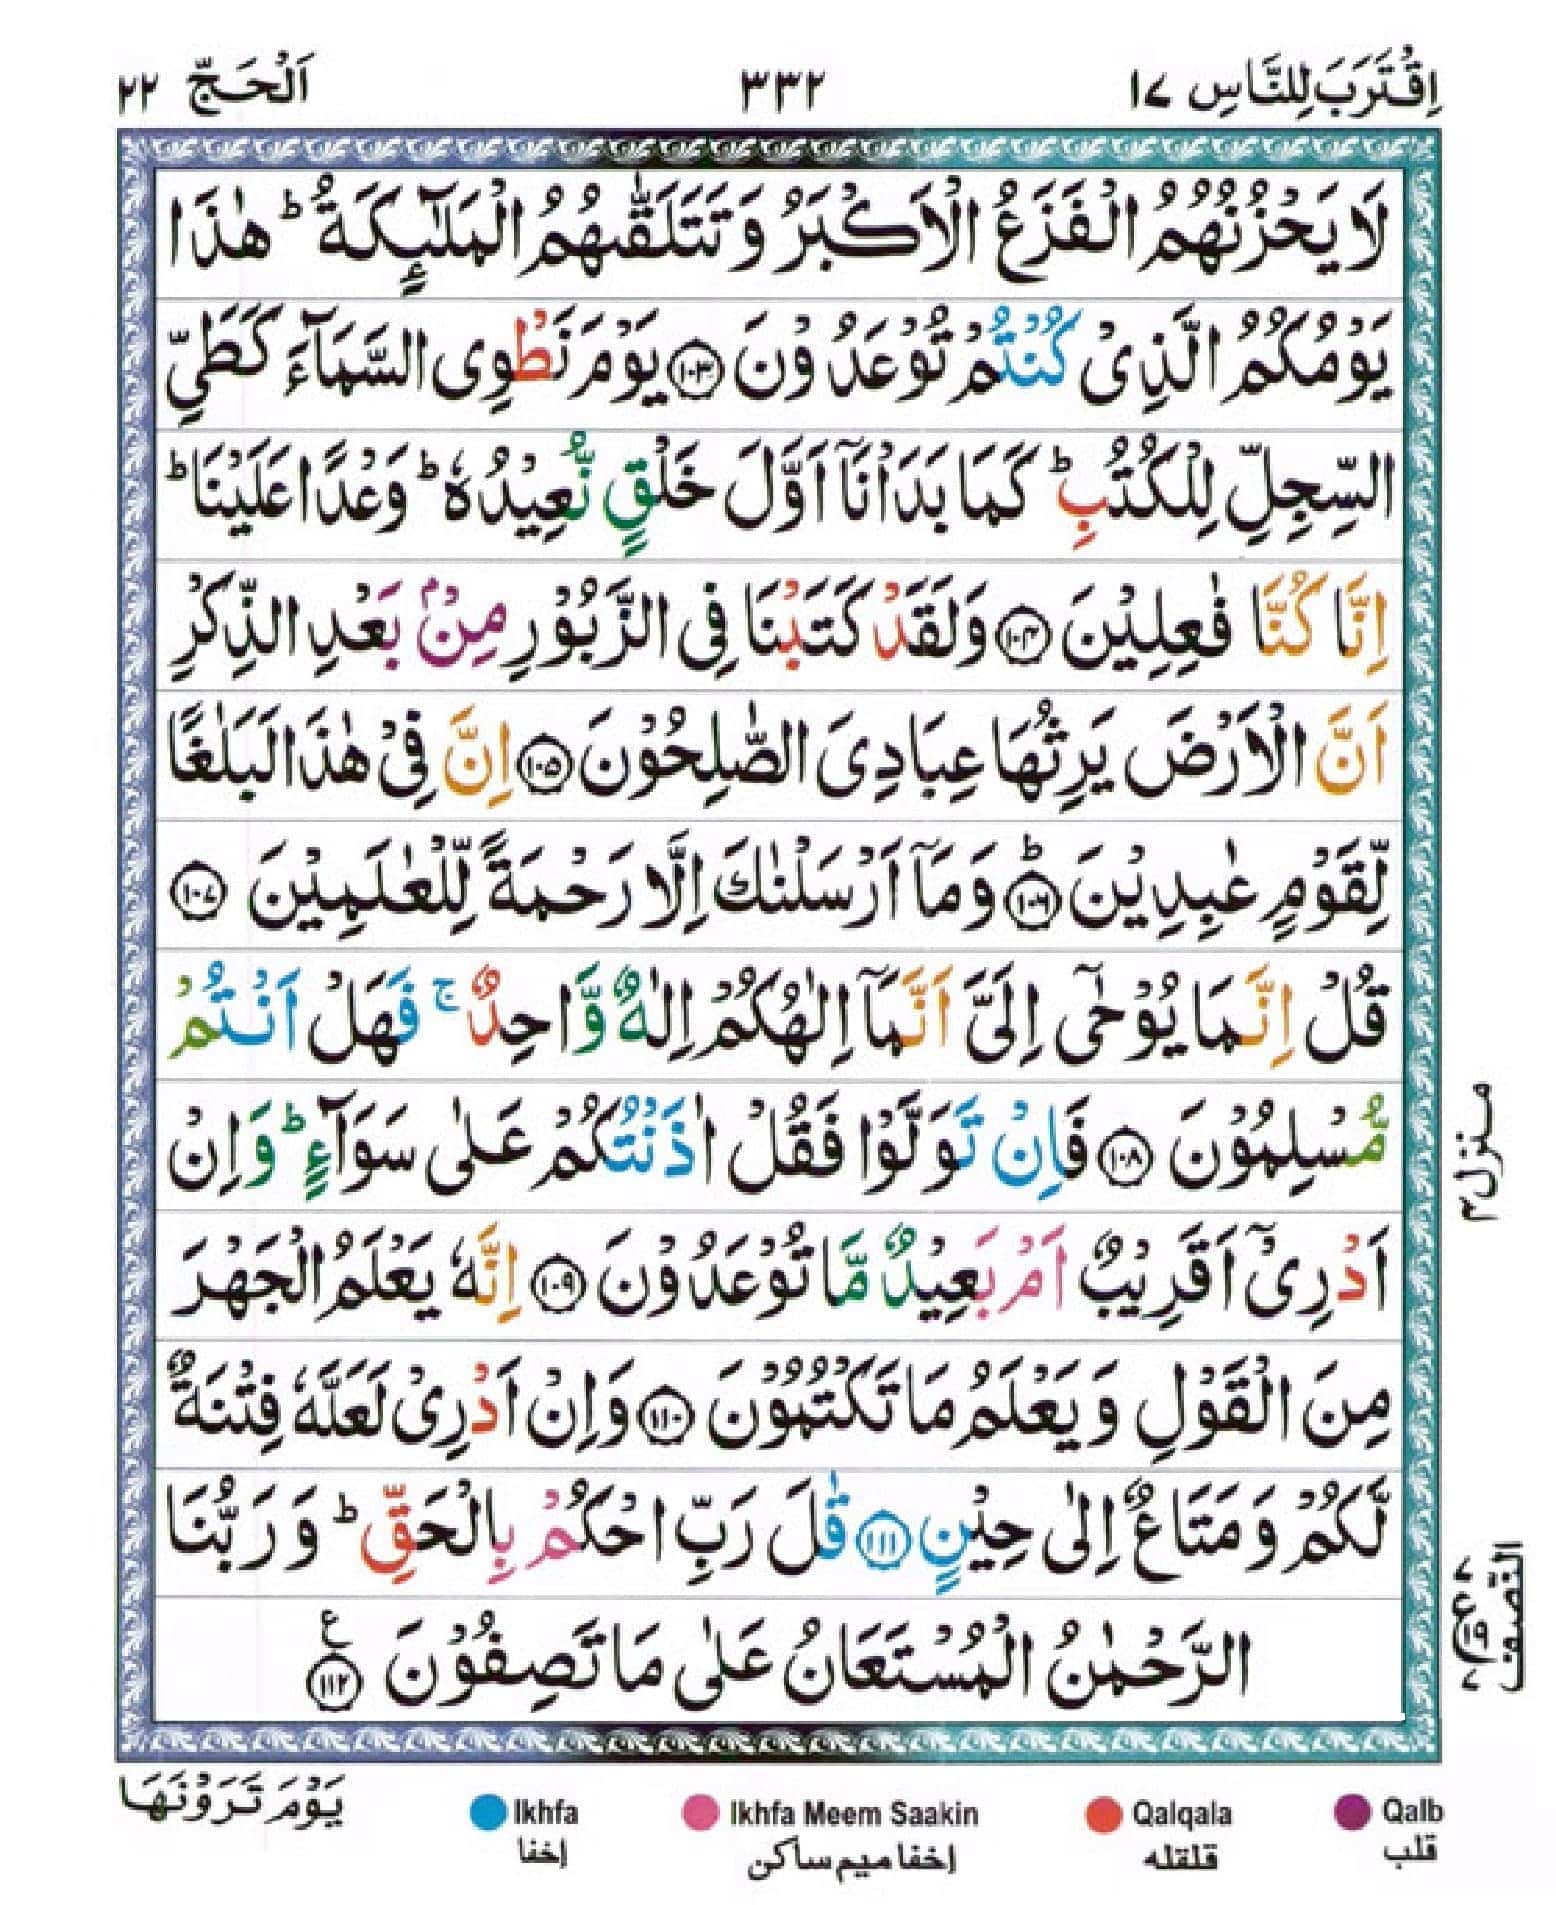 اِقْتَرَبَ لِلنَّاسِ ١٧
٣٣٢
اَلْحَجّ ٢٢
لَا يَحْزُنُهُمُ الْفَزَعُ الْاَكْبَرُ وَ تَتَلَقّٰىهُمُ الْمَلٰٓىِٕكَةُ ؕ هٰذَا
يَوْمُكُمُ الَّذِىْ كُنْتُمْ تُوْعَدُوْنَ ﴿۱۰۳﴾ يَوْمَ نَطْوِى السَّمَآءَ كَطَىِّ
السِّجِلِّ لِلْكُتُبِ ؕ كَمَا بَدَاْنَاۤ اَوَّلَ خَلْقٍ نُّعِيْدُهٗ ؕ وَعْدًا عَلَيْنَا ؕ
اِنَّا كُنَّا فٰعِلِيْنَ ﴿۱۰۴﴾ وَلَقَدْ كَتَبْنَا فِى الزَّبُوْرِ مِنْۢ بَعْدِ الذِّكْرِ
اَنَّ الْاَرْضَ يَرِثُهَا عِبَادِىَ الصّٰلِحُوْنَ ﴿۱۰۵﴾ اِنَّ فِىْ هٰذَا لَبَلٰغًا
لِّقَوْمٍ عٰبِدِيْنَ ؕ ﴿۱۰۶﴾ وَمَاۤ اَرْسَلْنٰكَ اِلَّا رَحْمَةً لِّلْعٰلَمِيْنَ ﴿۱۰۷﴾
قُلْ اِنَّمَا يُوْحٰٓى اِلَىَّ اَنَّمَاۤ اِلٰهُكُمْ اِلٰهٌ وَّاحِدٌ ۚ فَهَلْ اَنْتُمْ
مُّسْلِمُوْنَ ﴿۱۰۸﴾ فَاِنْ تَوَلَّوْا فَقُلْ اٰذَنْتُكُمْ عَلٰى سَوَآءٍ ؕ وَاِنْ
اَدْرِىْۤ اَقَرِيْبٌ اَمْ بَعِيْدٌ مَّا تُوْعَدُوْنَ ﴿۱۰۹﴾ اِنَّهٗ يَعْلَمُ الْجَهْرَ
مِنَ الْقَوْلِ وَ يَعْلَمُ مَا تَكْتُمُوْنَ ﴿۱۱۰﴾ وَاِنْ اَدْرِىْ لَعَلَّهٗ فِتْنَةٌ
لَّكُمْ وَ مَتَاعٌ اِلٰى حِيْنٍ ﴿۱۱۱﴾ قٰلَ رَبِّ احْكُمْ بِالْحَقِّ ؕ وَ رَبُّنَا
الرَّحْمٰنُ الْمُسْتَعَانُ عَلٰى مَا تَصِفُوْنَ ﴿۱۱۲﴾ ع
منزل ۴
النّصف
يَوْمَ تَرَوْنَهَا
Ikhfa
إخفا
Ikhfa Meem Saakin
إخفا ميم ساكن
Qalqala
قلقله
Qalb
قلب